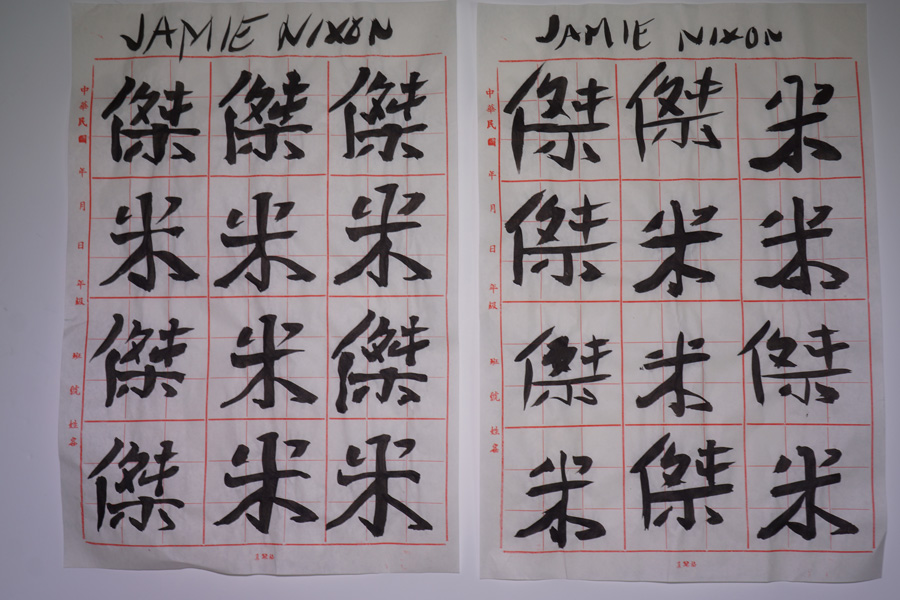 JAMIE NIXON
傑 傑 傑
米 米 米
傑 米 傑
傑 米 米
中華民國 年 月 日 年級 班 號 姓名
JAMIE NIXON
傑 傑 米
傑 米 米
傑 米 傑
米 傑 米
中華民國 年 月 日 年級 班 號 姓名